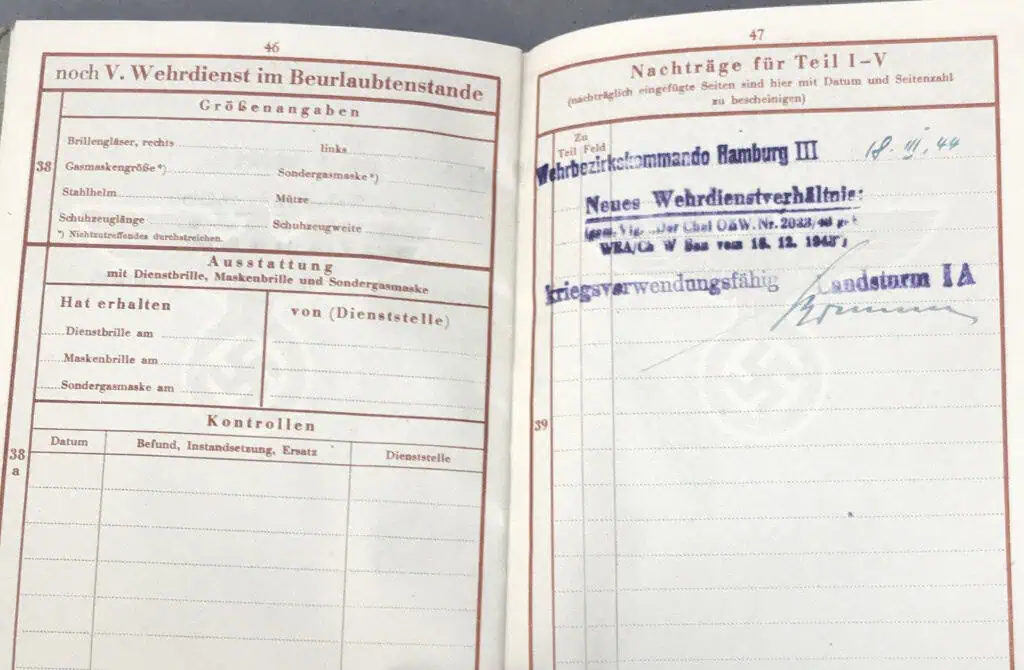 46
noch V. Wehrdienst im Beurlaubtenstande
38
Größenangaben
Brillengläser, rechts links
Gasmaskengröße*) Sondergasmaske*)
Stahlhelm Mütze
Schuhzeuglänge Schuhzeugweite
*) Nichtzutreffendes durchstreichen.
Ausstattung
mit Dienstbrille, Maskenbrille und Sondergasmaske
Hat erhalten von (Dienststelle)
Dienstbrille am
Maskenbrille am
Sondergasmaske am
Kontrollen
38 a
Datum Befund, Instandsetzung, Ersatz Dienststelle
47
Nachträge für Teil I–V
(nachträglich eingefügte Seiten sind hier mit Datum und Seitenzahl
zu bescheinigen)
Zu
Teil Feld
Wehrbezirkskommando Hamburg III 18. III. 44
Neues Wehrdienstverhältnis:
Vfg. Der Chef OKW. Nr.
vom 16. 12. 1943
kriegsverwendungsfähig Landsturm I A
39